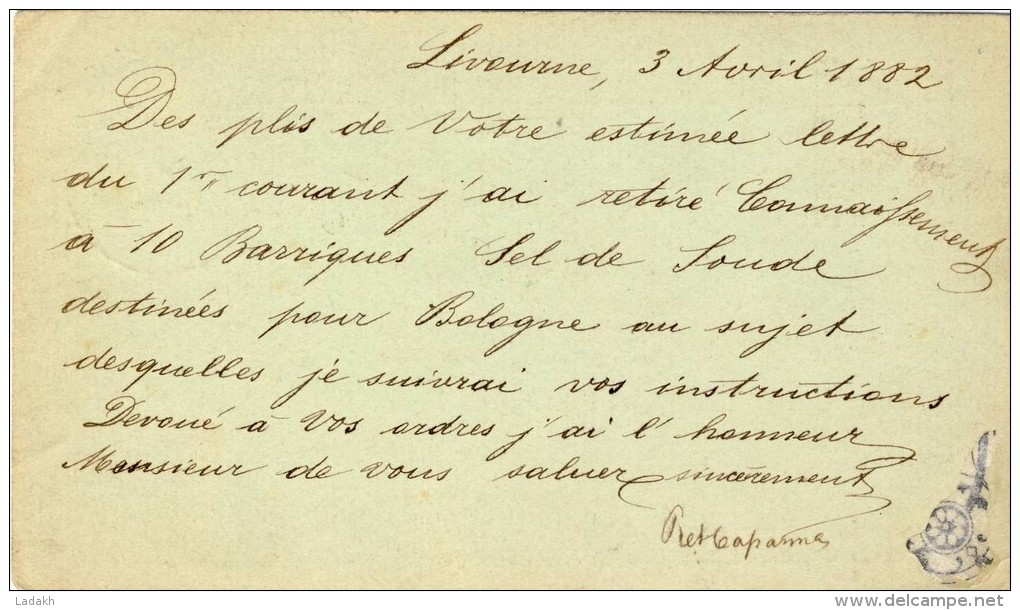 Livourne, 3 Avril 1882
Des plis de Votre estimée lettre
du 1er courant j'ai retiré Connaissement
à 10 Barriques Sel de Soude
destinées pour Bologne au sujet
desquelles je suivrai vos instructions
Devoué à Vos ordres j'ai l'honneur
Monsieur de vous saluer sincèrement
Ladakh
delcampe.net